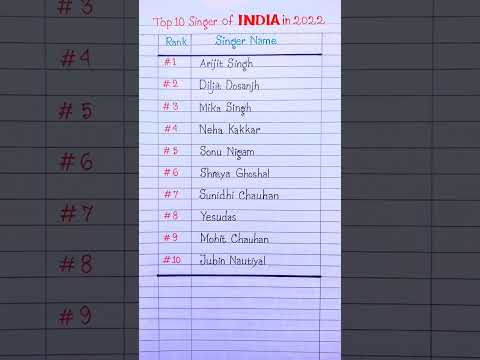 Top 10 Singer of INDIA in 2022
Rank Singer Name
#1 Arijit Singh
#2 Diljit Dosanjh
#3 Mika Singh
#4 Neha Kakkar
#5 Sonu Nigam
#6 Shreya Ghoshal
#7 Sunidhi Chauhan
#8 Yesudas
#9 Mohit Chauhan
#10 Jubin Nautiyal
#3
#4
#5
#6
#7
#8
#9